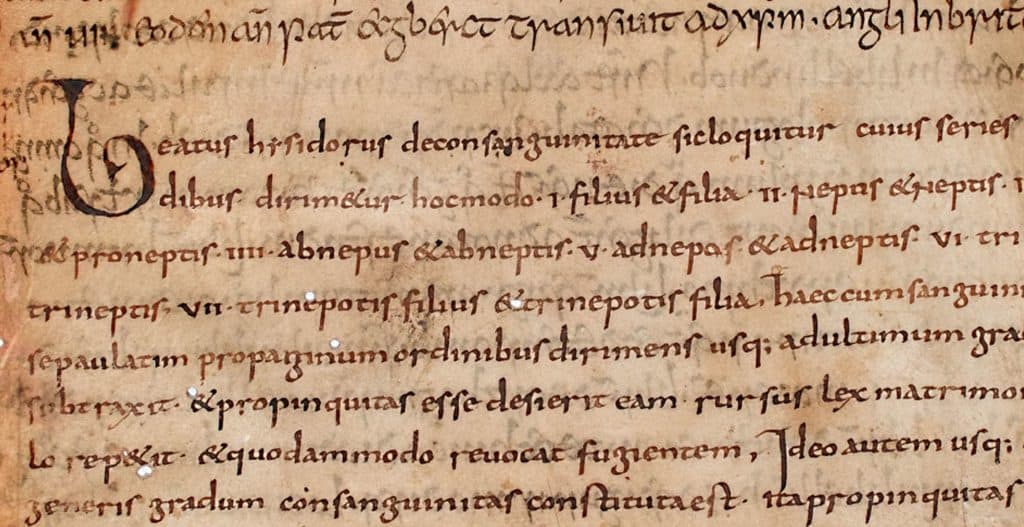 eodem an̄ pat̄ ecgberct transiuit ad xp̄m · angli in brit
Beatus hisidorus deconsanguinitate sicloquitur cuius series
dibus dirim&ur hocmodo · i · filius & filia · ii · Neptis & Neptis ·
& proneptis · iiii · abnepus & abneptis · v · adnepos · & adneptis · vi · tri
trineptis, vii · trinepotis filius & trinepotis filia, haec cumsanguini
sepaulatim propaginum ordinibus dirimens usq; adultimum gra
subtraxit · & propinquitas esse desierit eam · rursus lex matrimo
lo rep&it · & quodammodo reuocat fugientem, Ideo autem usq;
generis gradum consanguinitas constituta est · ita propinquitas